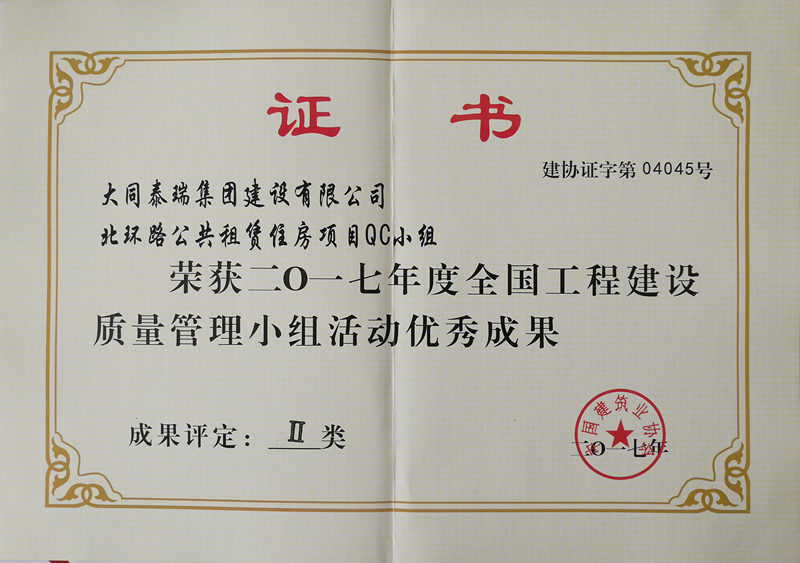 证 书
建协证字第 04045号
大同泰瑞集团建设有限公司
北环路公共租赁住房项目QC小组
荣获二〇一七年度全国工程建设
质量管理小组活动优秀成果
成果评定：Ⅱ类
中国建筑业协会
二〇一七年